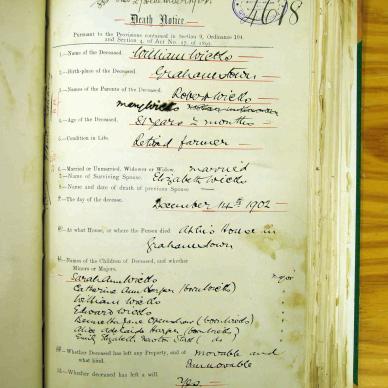 4618
Death Notice.
Pursuant to the Provisions contained in Section 9, Ordinance 104
and Section 4, of Act No. 17, of 1895.
1.—Name of the Deceased. William Wicks
2.—Birth-place of the Deceased. Grahamstown
3.—Names of the Parents of the Deceased. Robert Wicks
Mary Wicks
4.—Age of the Deceased. 81 years 2 months
5.—Condition in Life. Retired farmer
6.—Married or Unmarried, Widower or Widow. married
7.—Name of Surviving Spouse. Elizabeth Wicks
8.—Name and date of death of previous Spouse
9.—The day of the decease. December 14th 1902
10.—At what House, or where the Person died At his House in
Grahamstown
11.—Names of the Children of Deceased, and whether
Minors or Majors.
Sarah Ann Wicks major
Catherine Ann Harper (born Wicks) "
William Wicks "
Edward Wicks "
Jane Openshaw (born Wicks) "
Alice Adelaide Harper (born Wicks) "
Emily Elizabeth Newton (do
—Whether Deceased has left any Property, and of
what kind. movable and
Immovable
—Whether deceased has left a will. Yes